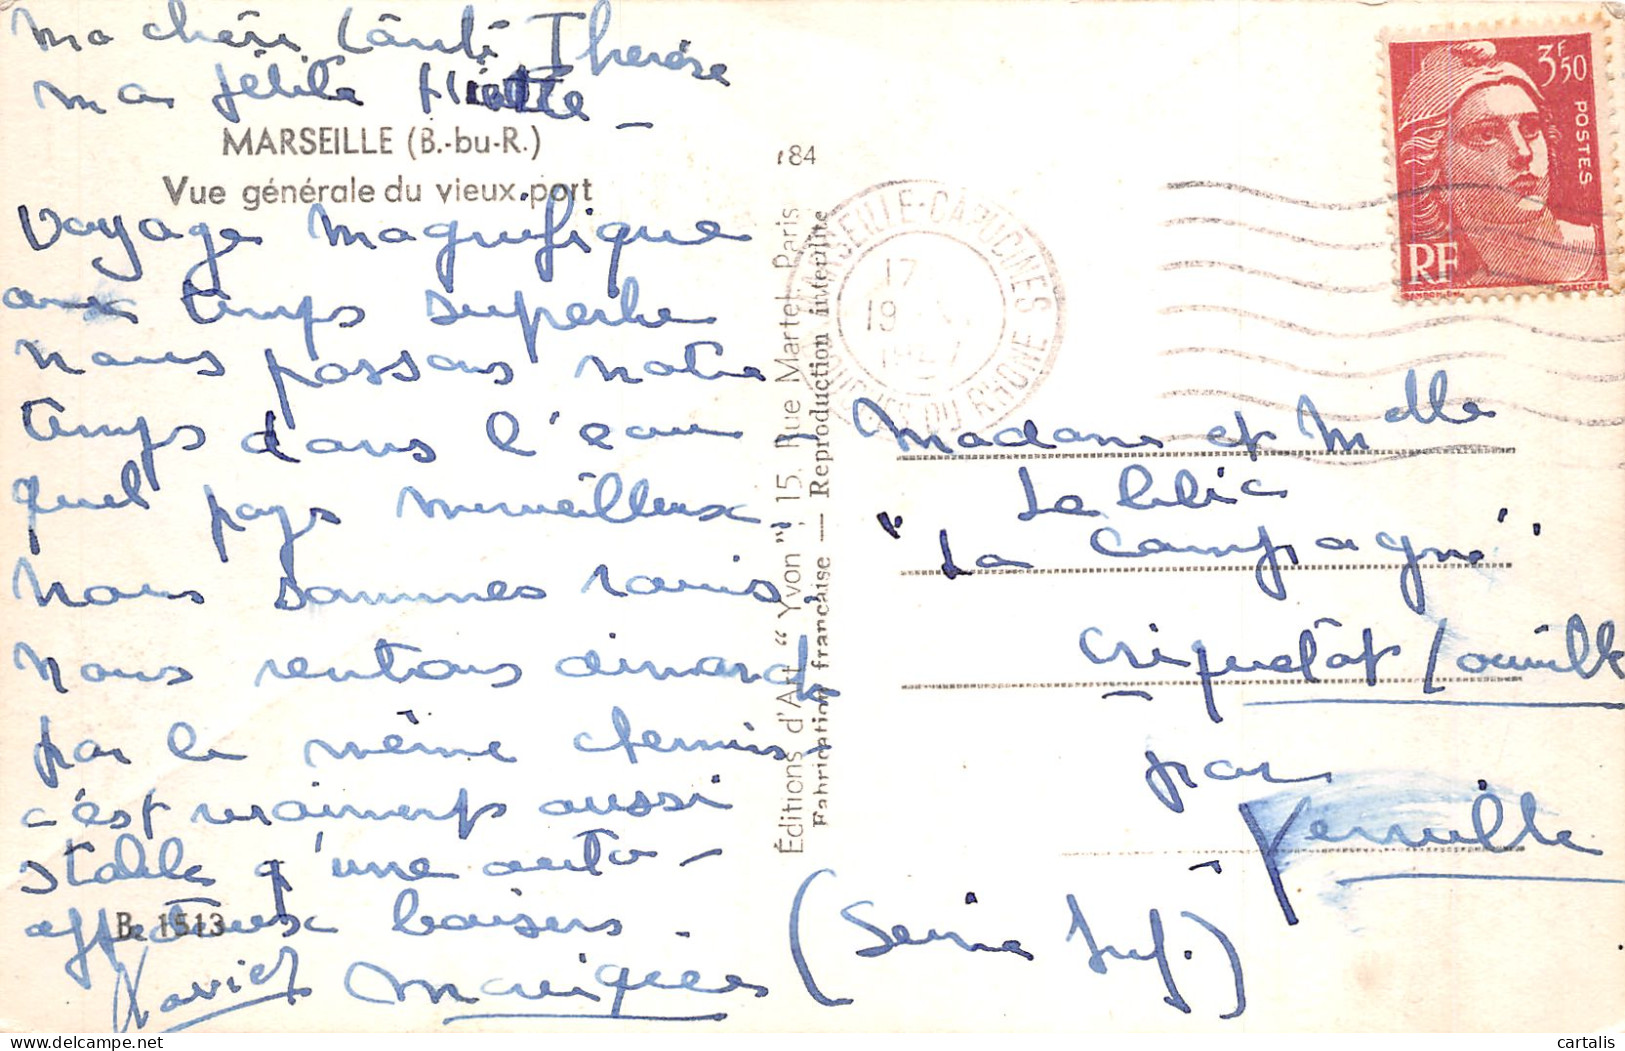 Ma chère Tante Thérèse
ma petite
MARSEILLE (B.-du-R.)
Vue générale du vieux port
Voyage magnifique
temps superbe
nous passons notre
temps dans l'eau
quel pays merveilleux
nous sommes ravis
nous rentrons dimanche
par le même chemin
c'est vraiment aussi
stable q'une auto -
afftueux baisers -
B. 1513
184
Éditions d'Art "Yvon", 15, Rue Martel, Paris
Fabrication française — Reproduction interdite
MARSEILLE-CAPUCINES
17
19
BOUCHES DU RHONE
3F50
POSTES
RF
GANDON
CORTOT
Madame et Melle
"La Campagne"
Criquetot / Ouville
par
Yerville
(Seine Inf.)
cartalis